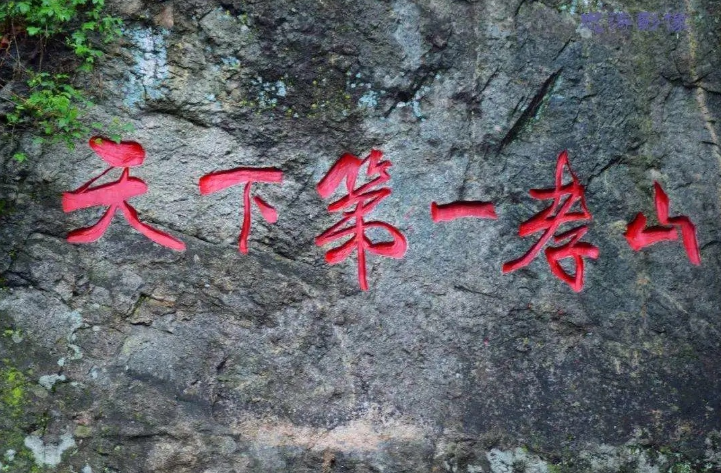 天下第一孝山